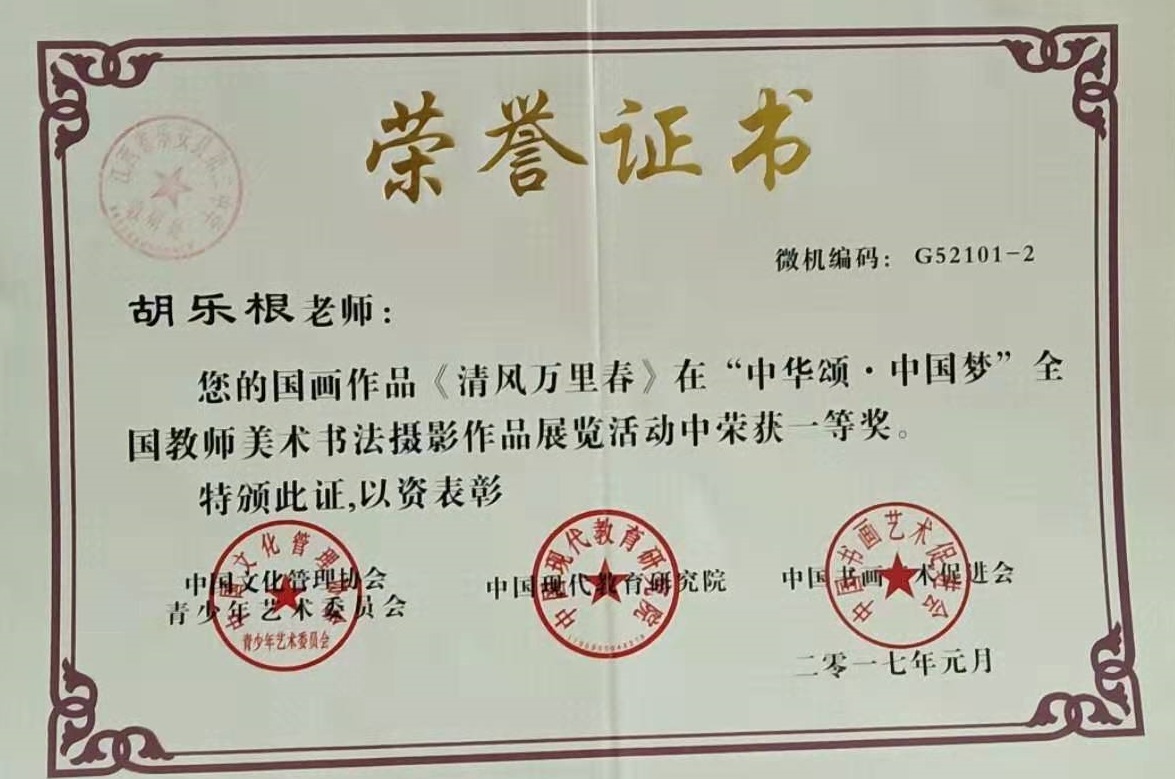 荣誉证书
微机编码： G52101-2
胡乐根老师：
您的国画作品《清风万里春》在“中华颂·中国梦”全
国教师美术书法摄影作品展览活动中荣获一等奖。
特颁此证,以资表彰
中国文化管理协会
青少年艺术委员会
青少年艺术委员会
中国现代教育研究院
中国现代教育研究院
中国书画艺术促进会
中国书画艺术促进会
二零一七年元月